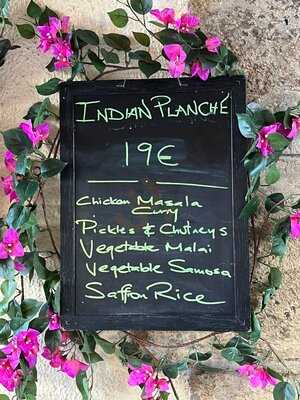 INDIAN PLANCHÉ
19€
Chicken Masala
Curry
Pickles & Chutneys
Vegetable Malai
Vegetable Samosa
Saffron Rice